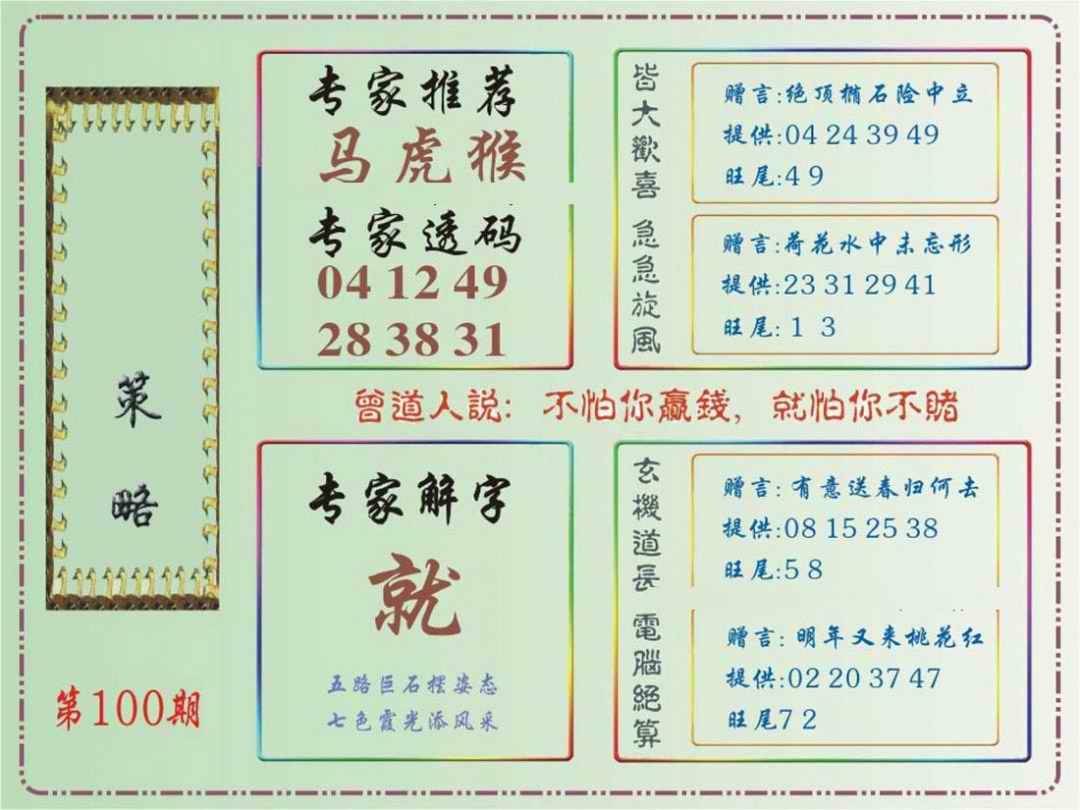 策
略
第100期
专家推荐
马虎猴
专家透码
04 12 49
28 38 31
皆大歡喜
赠言:绝顶梢石险中立
提供:04 24 39 49
旺尾:4 9
急急旋風
赠言:荷花水中未忘形
提供:23 31 29 41
旺尾:1 3
曾道人説: 不怕你贏錢, 就怕你不賭
专家解字
就
五路巨石摆姿态
七色霞光添风采
玄機道長
赠言: 有意送春归何去
提供:08 15 25 38
旺尾:5 8
電腦絕算
赠言: 明年又来桃花红
提供:02 20 37 47
旺尾7 2